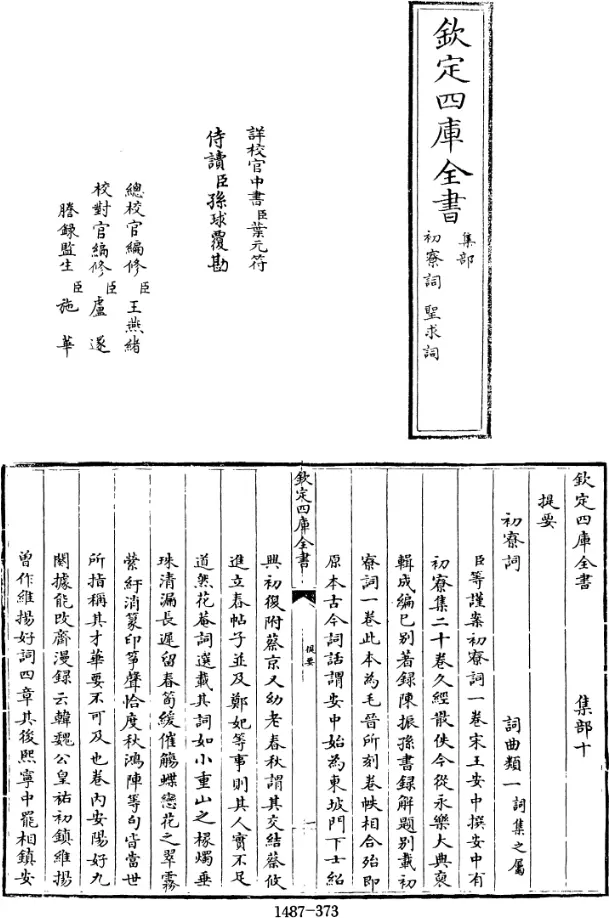 欽定四庫全書
集部
初寮詞 聖求詞
詳校官中書臣葉元符
侍讀臣孫球覆勘
總校官編修臣王燕緒
校對官編修臣盧遂
謄錄監生臣施華
欽定四庫全書 集部十
提要
初寮詞 詞曲類一詞集之屬
臣等謹案初寮詞一卷宋王安中撰安中有
初寮集二十卷久經散佚今從永樂大典裒
輯成編已别著錄陳振孫書錄解題别載初
寮詞一卷此本為毛晉所刻卷帙相合殆即
原本古今詞話謂安中始為東坡門下士紹
欽定四庫全書
提要
一
興初復附蔡京又幼老春秋謂其交結蔡攸
進立春帖子並及鄭妃等事則其人實不足
道然花菴詞選載其詞如小重山之椽燭垂
珠清漏長遲留春筍緩催觴蝶戀花之翠霧
縈紆消篆印箏聲恰度秋鴻陣等句皆當世
所指稱其才華要不可及也卷内安陽好九
闋據能改齋漫録云韓魏公皇祐初鎮維揚
曾作維揚好詞四章其後熙寧中罷相鎮安
1487-373